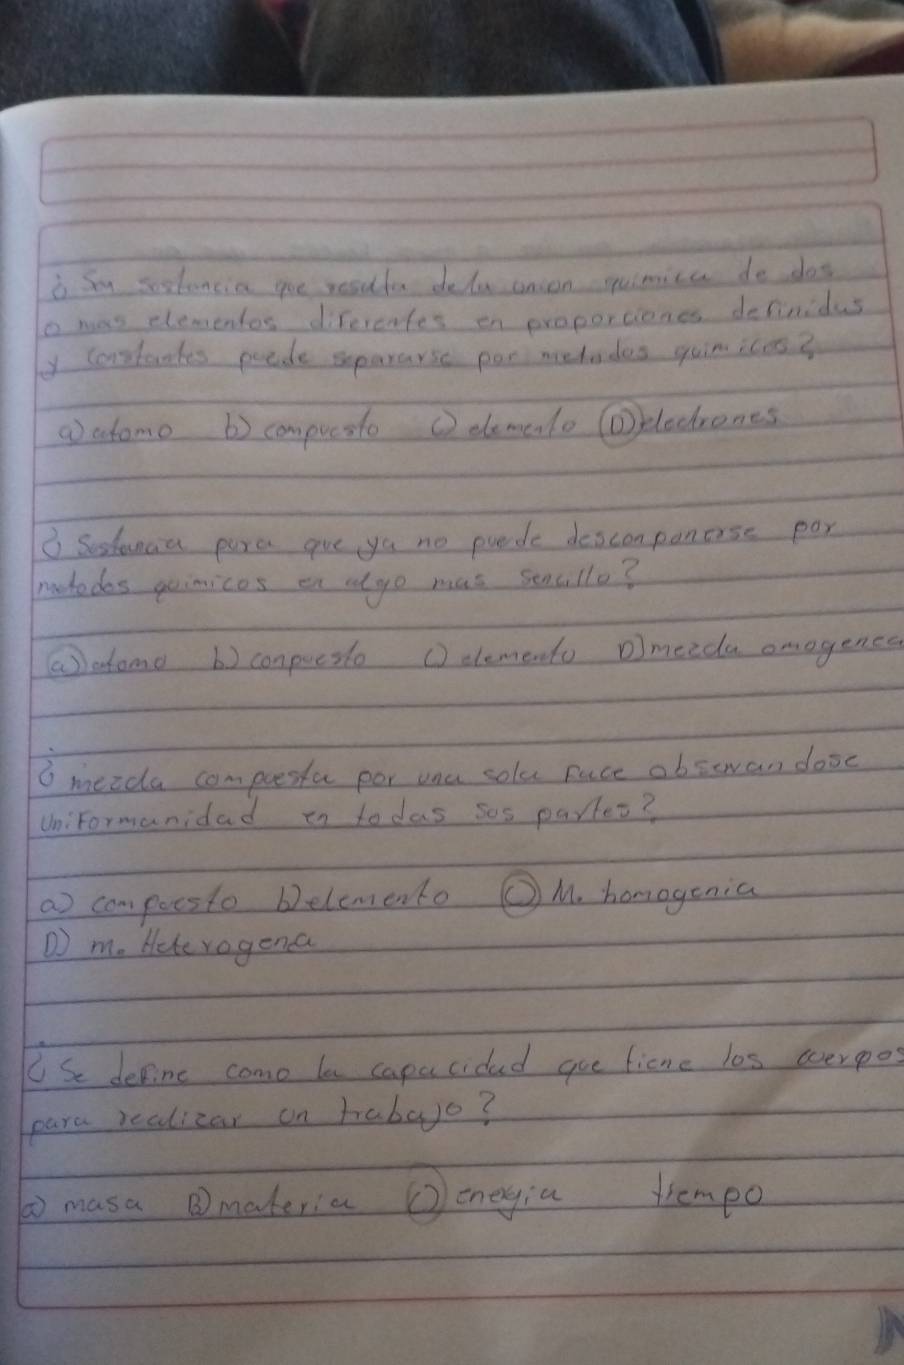 ¿ Son sostancia que resulta dela union quimica de dos
o mas elementos diferentes en proporciones definidas
y constantes puede separarse por metodos quimicos?
a) atomo b) compuesto C) elemento D) electrones
¿ Sostancia pura que ya no puede desconponerse por
metodos quimicos en algo mas sencillo?
a) atomo b) conpuesto C) elemento D) mezcla omogenea
¿ mezcla compuesta por una sola face obsevandose
uniformanidad en todas sos partes?
a) compuesto b) elemento C) M. homogenia
D) m. Heterogena
¿ Se define como la capacidad que tiene los cuerpos
para realizar un trabajo?
a) masa B) materia C) enegia tiempo